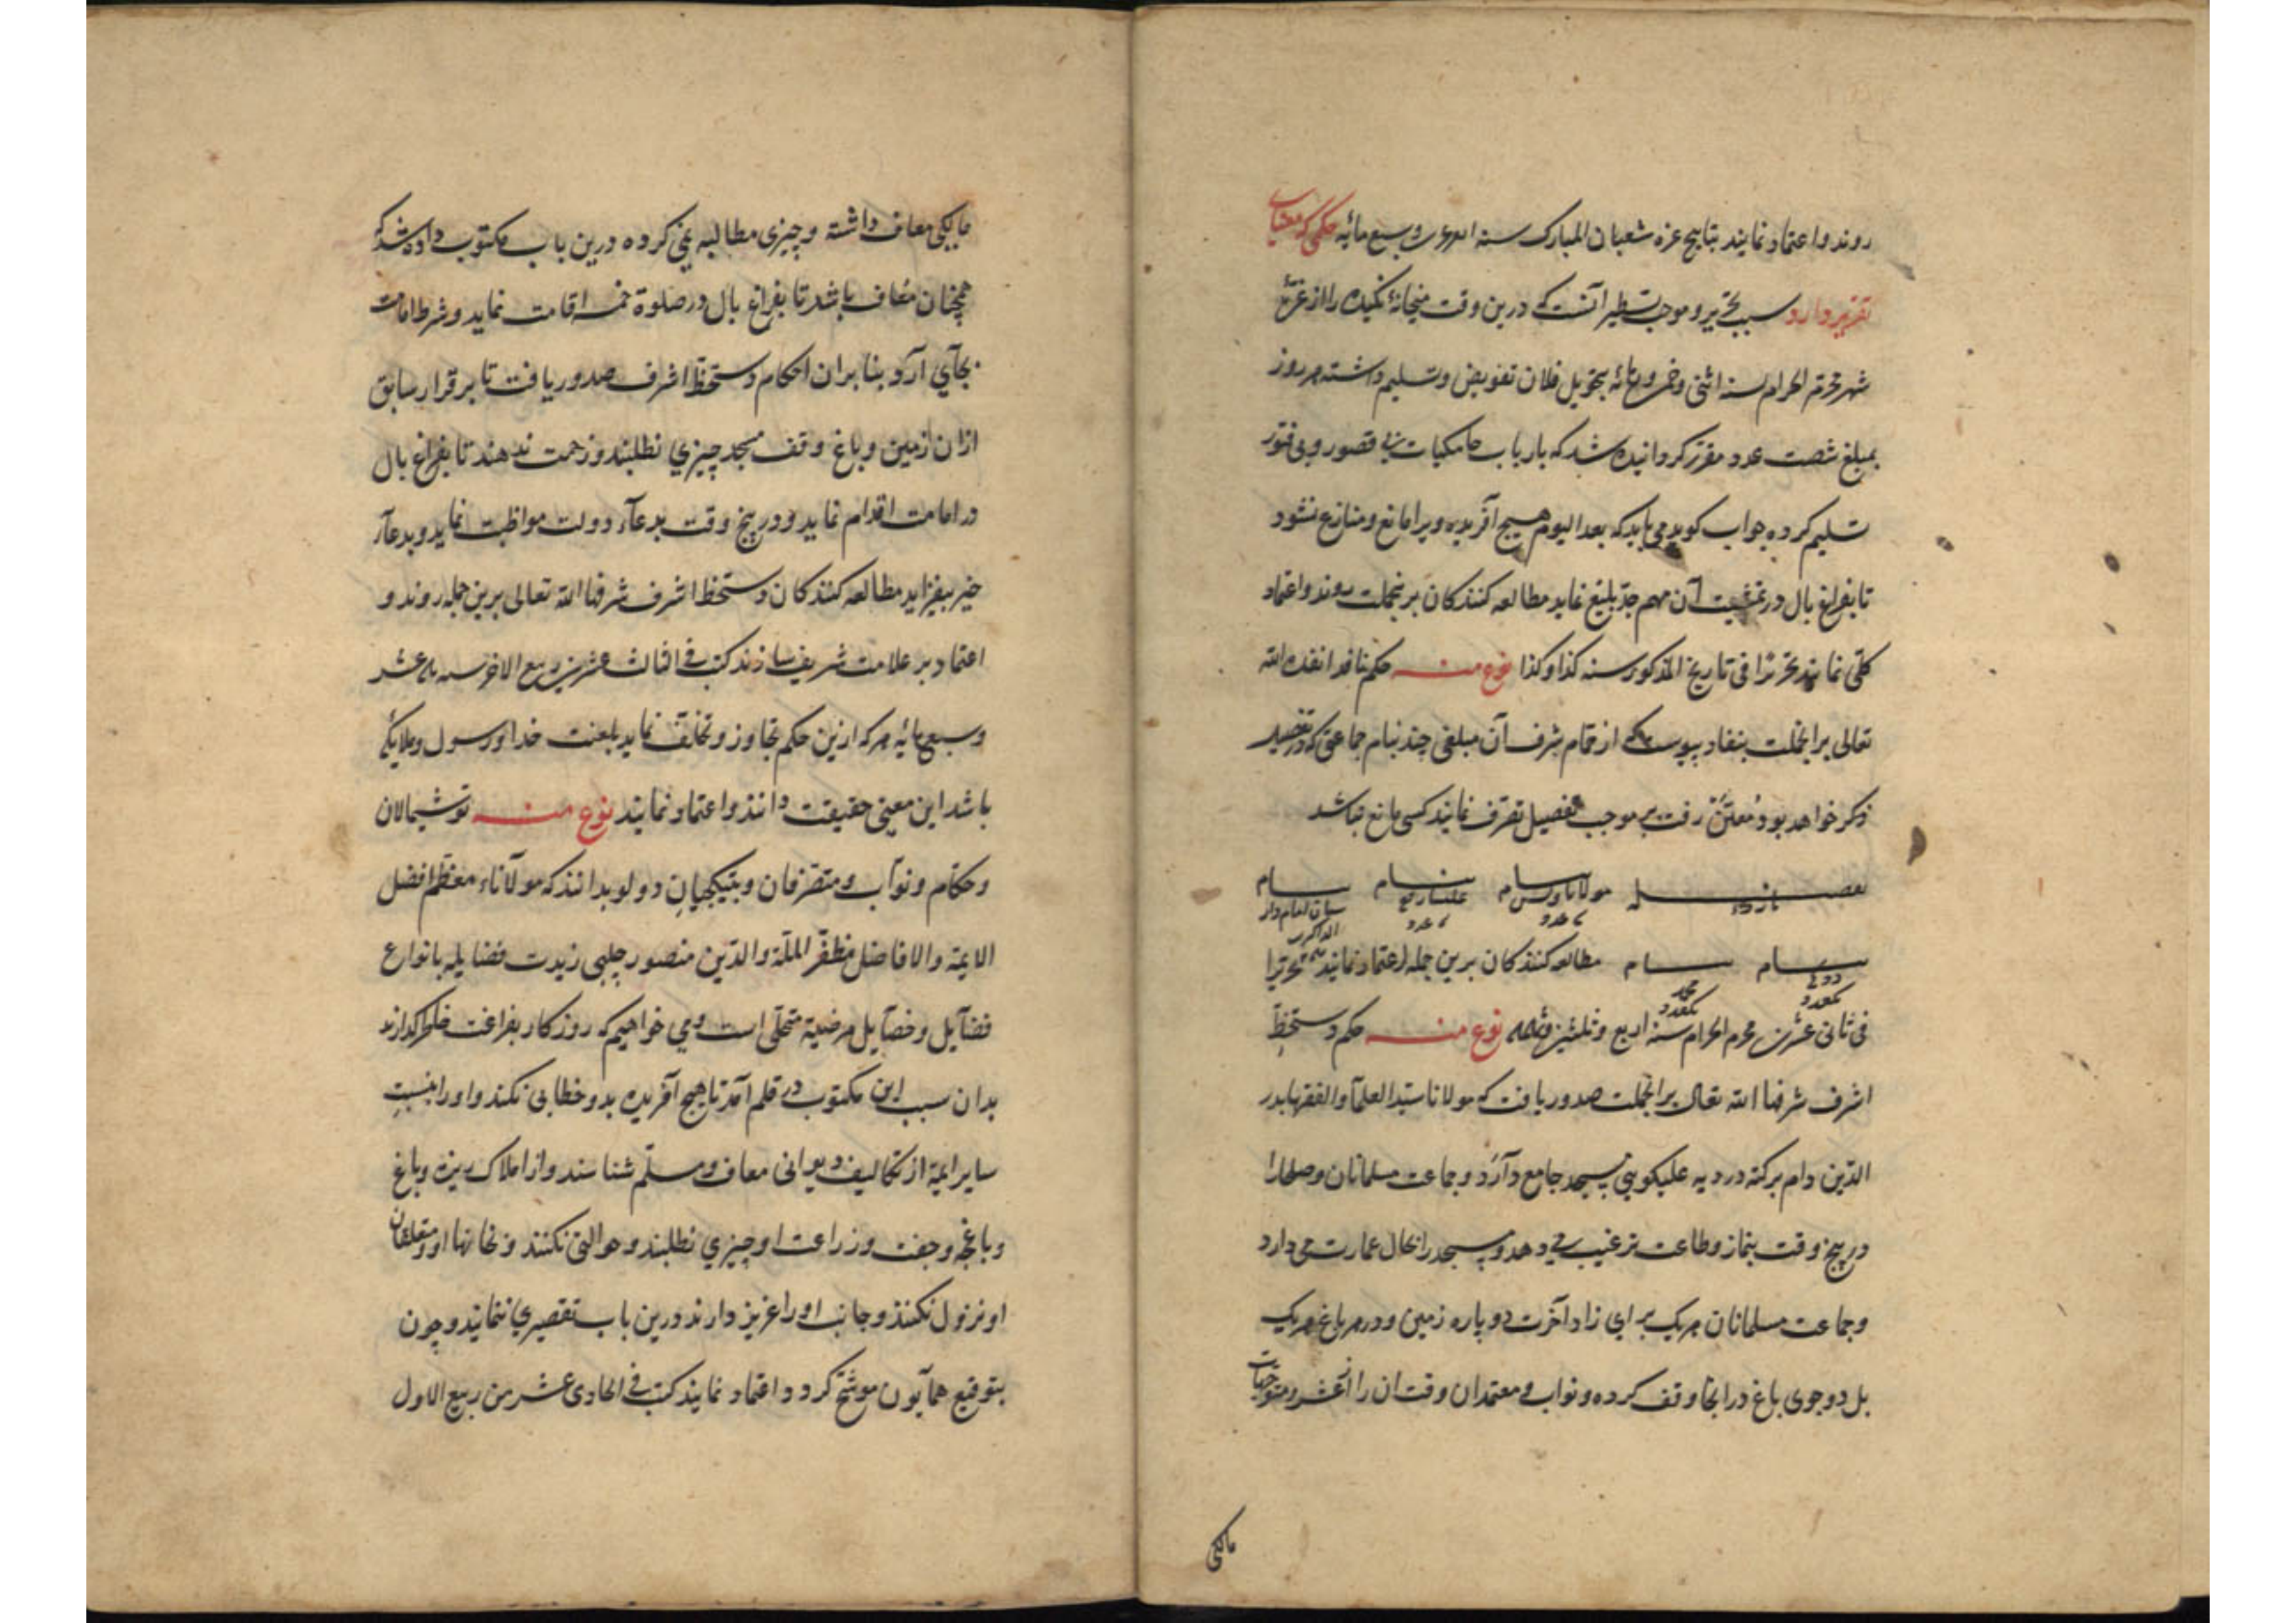 روند و اعتماد نمایند بتاریخ غره شعبان المبارک سنه وسبع مائه حکمی که
تقریر دارد سبب تحریر و موجب تسطیر آنست که درین وقت میخانهٔ نکیده را از غرهٔ
شهر محرم الحرام سنه اثنی و بتحویل فلان تفویض و تسلیم داشته هر روز
بمبلغ شصت عدد مقرر کردانیده شد که بارباب جامکیات بی قصور و بی فتور
تسلیم کرده جواب کوید می باید که بعد الیوم هیچ آفریده ویرا مانع و منازع نشود
تا بفراغ بال در تمشیت آن مهم جد بلیغ نماید مطالعه کنندکان برینجملت روند و اعتماد
کلی نمایند تحریرا فی تاریخ المذکور سنه کذا و کذا نوع منه حکم نافذ انفذه الله
تعالی برانجملت بنفاد پیوست که از تمام آن مبلغی چند بنام جماعتی که در
ذکر خواهد بود و معین رفت بر موجب مفصل تصرف نمایند کسی مانع نباشد
مولانا بنام
بنام بنام مطالعه کنندکان برین جمله اعتماد نمایند تحریرا
فی ثانی عشرین محرم الحرام سنه اربع و ثلثین نوع منه حکم و دستخط
اشرف شرفها الله تعالی برانجملت صدور یافت که مولانا سید العلماء و الفقها بدر
الدین دام برکته در دیه علیکوبنی مسجد جامع دارد و جماعت مسلمانان و صلحا را
در پنج وقت بنماز و طاعت ترغیب می دهد و مسجد را بحال عمارت می دارد
و جماعت مسلمانان هریک برای زاد آخرت دو پاره زمین و در هر باغ هریک
بل دو جوی باغ در انجا وقف کرده و نواب و معتمدان وقت ان را از عشر و متوجهات
مالکی
مالکی معاف داشته و چیزی مطالبه نمی کرده درین باب مکتوب داده شد که
همچنان معاف باشد تا بفراغ بال در صلوة خمسه اقامت نماید و شرط امامت
بجای آرد بنابران احکام و دستخط اشرف صدور یافت تا بر قرار سابق
ازان زمین و باغ وقف مسجد چیزی نطلبند و زحمت ندهند تا بفراغ بال
در امامت اقدام نماید و در پنج وقت بدعاء دولت مواظبت نماید و بدعاء
خیر بیفزاید مطالعه کنندکان دستخط اشرف شرفها الله تعالی برین جمله روند و
اعتماد بر علامت شریف سازند کتب فی الثالث عشرین ربیع الاخر سنه عشر
وسبع مائه هرکه ازین حکم تجاوز و تخلف نماید بلعنت خدا و رسول و ملایکه
باشد این معنی حقیقت دانند و اعتماد نمایند نوع منه توشیمالان
و حکام و نواب و متصرفان و بتیکچیان دولو بدانند که مولاناء معظم افضل
الایمة و الافاضل مظفر الملة و الدین منصور چلبی زیدت فضایله بانواع
فضایل و خصایل مرضیة متحلی است و می خواهیم که روزکار بفراغت خاطر کذارند
بدان سبب این مکتوب در قلم آمد تا هیچ آفریده بدو خطابی نکند و او را بنسبت
سایر ایمة از تکالیف دیوانی معاف و مسلم شناسند و از املاک ریزه و باغ
و باغچه و جفت و زراعت او چیزی نطلبند و حوالتی نکنند و نخانها او و متعلقان
او نزول نکنند و جانب او را عزیز دارند درین باب تقصیری ننمایند و چون
بتوقیع همایون موشح کردد اعتماد نمایند کتب فی الحادی عشر من ربیع الاول